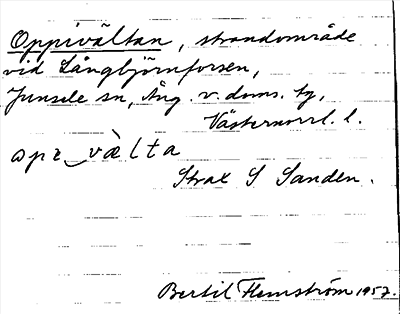 Oppivältan, strandområde
vid Långbjörnforsen,
Junsele sn, Ång. v. doms. tg,
Västernorrl. l.
opı‿vὲlta
Strax S Sanden.
Bertil Flemström 1957.